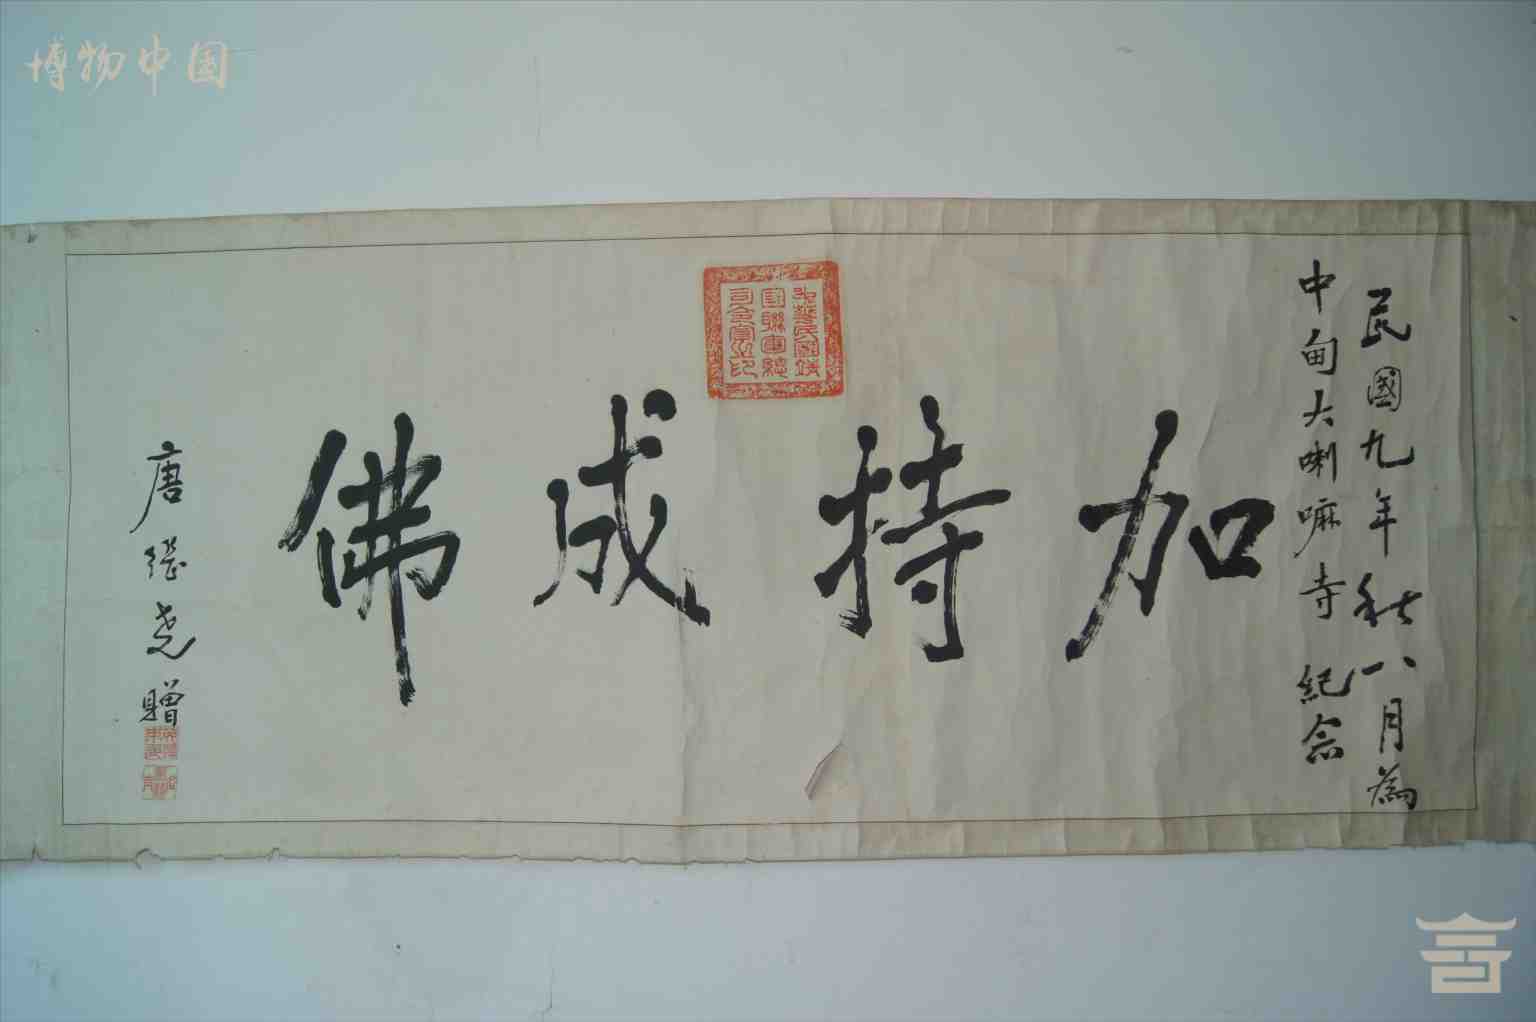 博物中国
民國九年秋八月為
中甸大喇嘛寺紀念
加持成佛
唐繼堯贈